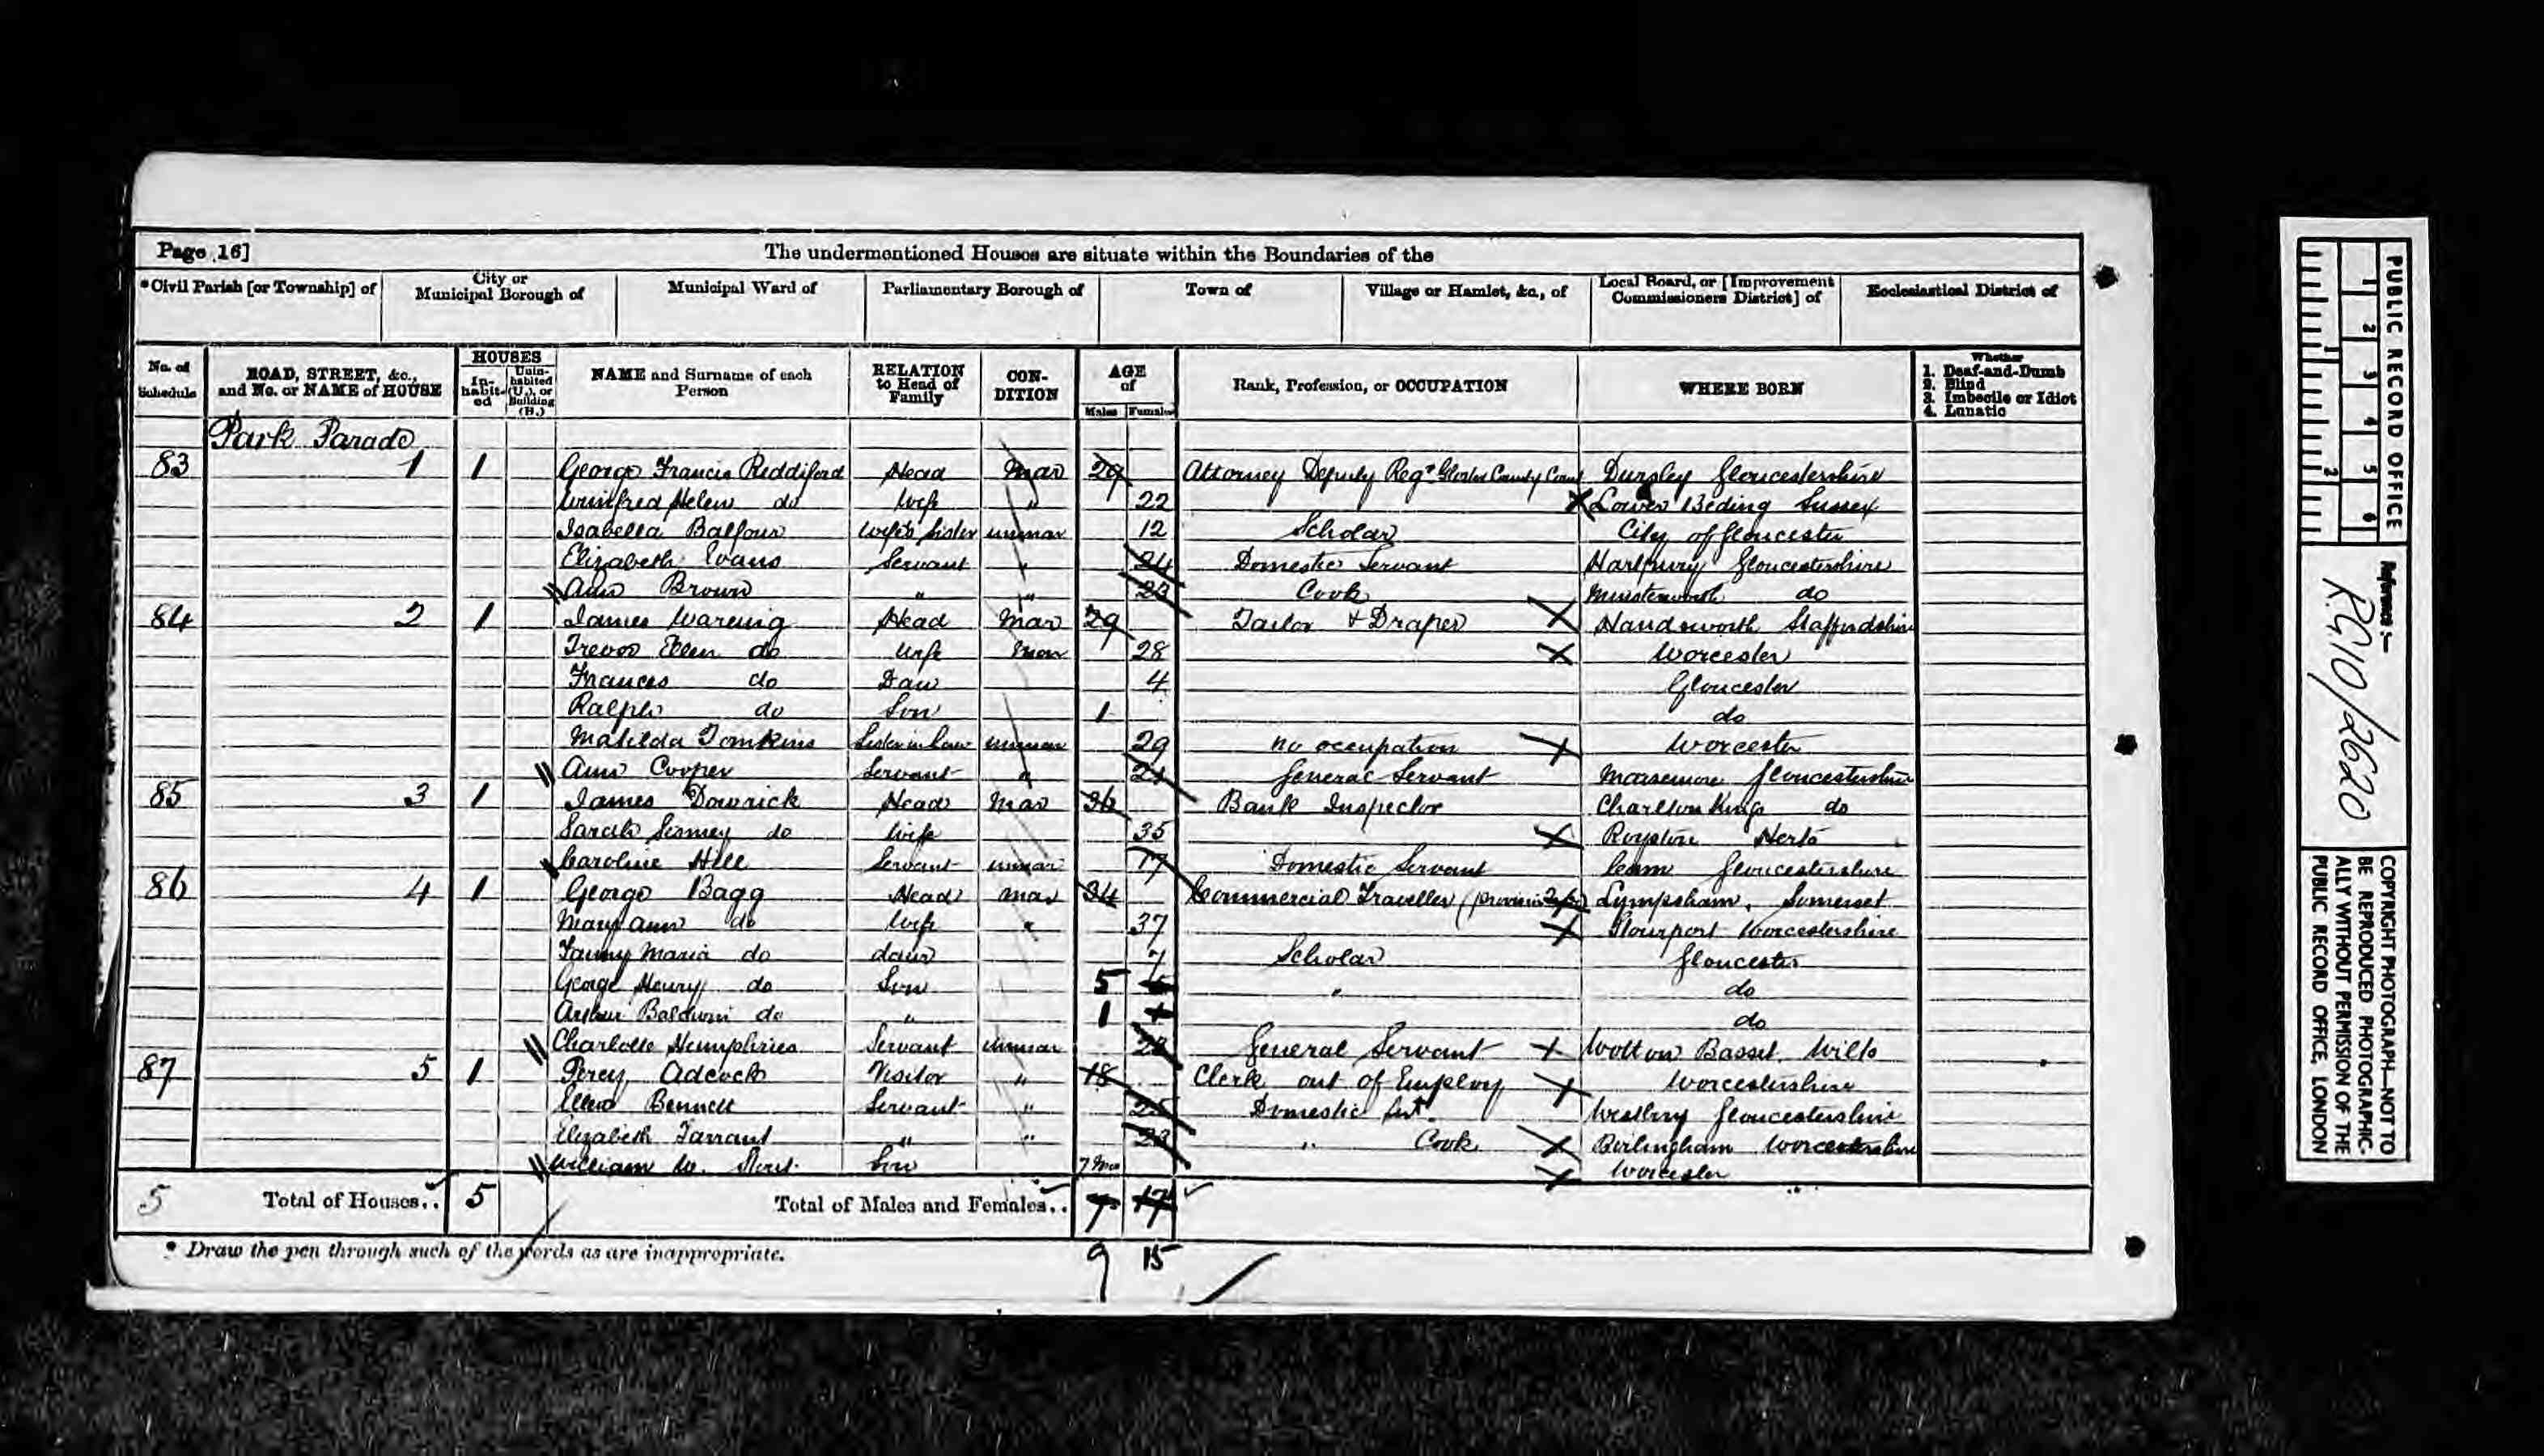 Page 16] The undermentioned Houses are situate within the Boundaries of the
*Civil Parish [or Township] of City or Municipal Borough of Municipal Ward of Parliamentary Borough of Town of Village or Hamlet, &c., of Local Board, or [Improvement Commissioners District] of Ecclesiastical District of
No. of Schedule ROAD, STREET, &c., and No. or NAME of HOUSE HOUSES Inhabited Uninhabited (U.), or Building (B.) NAME and Surname of each Person RELATION to Head of Family CONDITION AGE of Males Females Rank, Profession, or OCCUPATION WHERE BORN Whether 1. Deaf-and-Dumb 2. Blind 3. Imbecile or Idiot 4. Lunatic
Park Parade
83 1 1 George Francis Reddiford Head Mar 29 Attorney Deputy Regr Gloster County Court Dursley Gloucestershire
Winifred Helen do Wife " 22 Lower Beding Sussex
Isabella Balfour Wife's Sister unmar 12 Scholar City of Gloucester
Elizabeth Evans Servant " 24 Domestic Servant Hartpury Gloucestershire
Ann Brown " " 23 Cook Minsterworth do
84 2 1 James Wareing Head Mar 29 Tailor & Draper Handsworth Staffordshire
Trevor Ellen do Wife Mar 28 Worcester
Frances do Daur 4 Gloucester
Ralph do Son 1 do
Matilda Tomkins Sister in law unmar 29 no occupation Worcester
Ann Cooper Servant " 21 General Servant Gloucestershire
85 3 1 James Dowrick Head Mar 36 Bank Inspector Charlton Kings do
Sarah do Wife 35 Royston Herts
Caroline Hill Servant unmar 17 Domestic Servant Cam Gloucestershire
86 4 1 George Bagg Head mar 34 Commercial Traveller Lympsham, Somerset
Mary Ann do Wife " 37 Stourport Worcestershire
Fanny Maria do daur 7 Scholar Gloucester
George Henry do Son 5 " do
Arthur Baldwin do " 1 do
Charlotte Humphries Servant unmar General Servant Wotton Basset, Wilts
87 5 1 Percy Adcock Visitor " 18 Clerk out of Employ Worcestershire
Ellen Bennett Servant " 25 Domestic Svt Westbury Gloucestershire
Elizabeth Tarrant " " 23 " Cook Birlingham Worcestershire
William W. Son 7 Mo Worcester
5 Total of Houses.. 5 Total of Males and Females.. 7 17
* Draw the pen through such of the words as are inappropriate.
9 15
PUBLIC RECORD OFFICE
1 2 3 4 5 6
1 2
Reference:—
RG10/2620
COPYRIGHT PHOTOGRAPH—NOT TO
BE REPRODUCED PHOTOGRAPHIC-
ALLY WITHOUT PERMISSION OF THE
PUBLIC RECORD OFFICE, LONDON